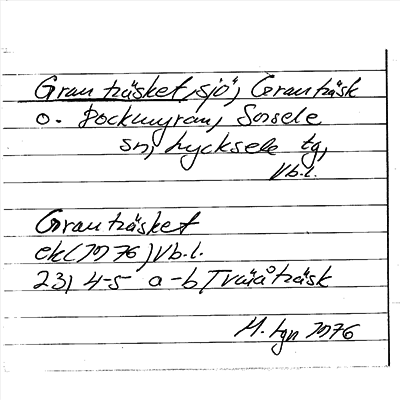 Granträsket, sjö, Granträsk
o. Bockmyran, Sorsele
sn, Lycksele tg,
Vb.l.
Granträsket
ek (1976) Vb.l.
23J 4-5 a-b Tväråträsk
H. lgn 1976